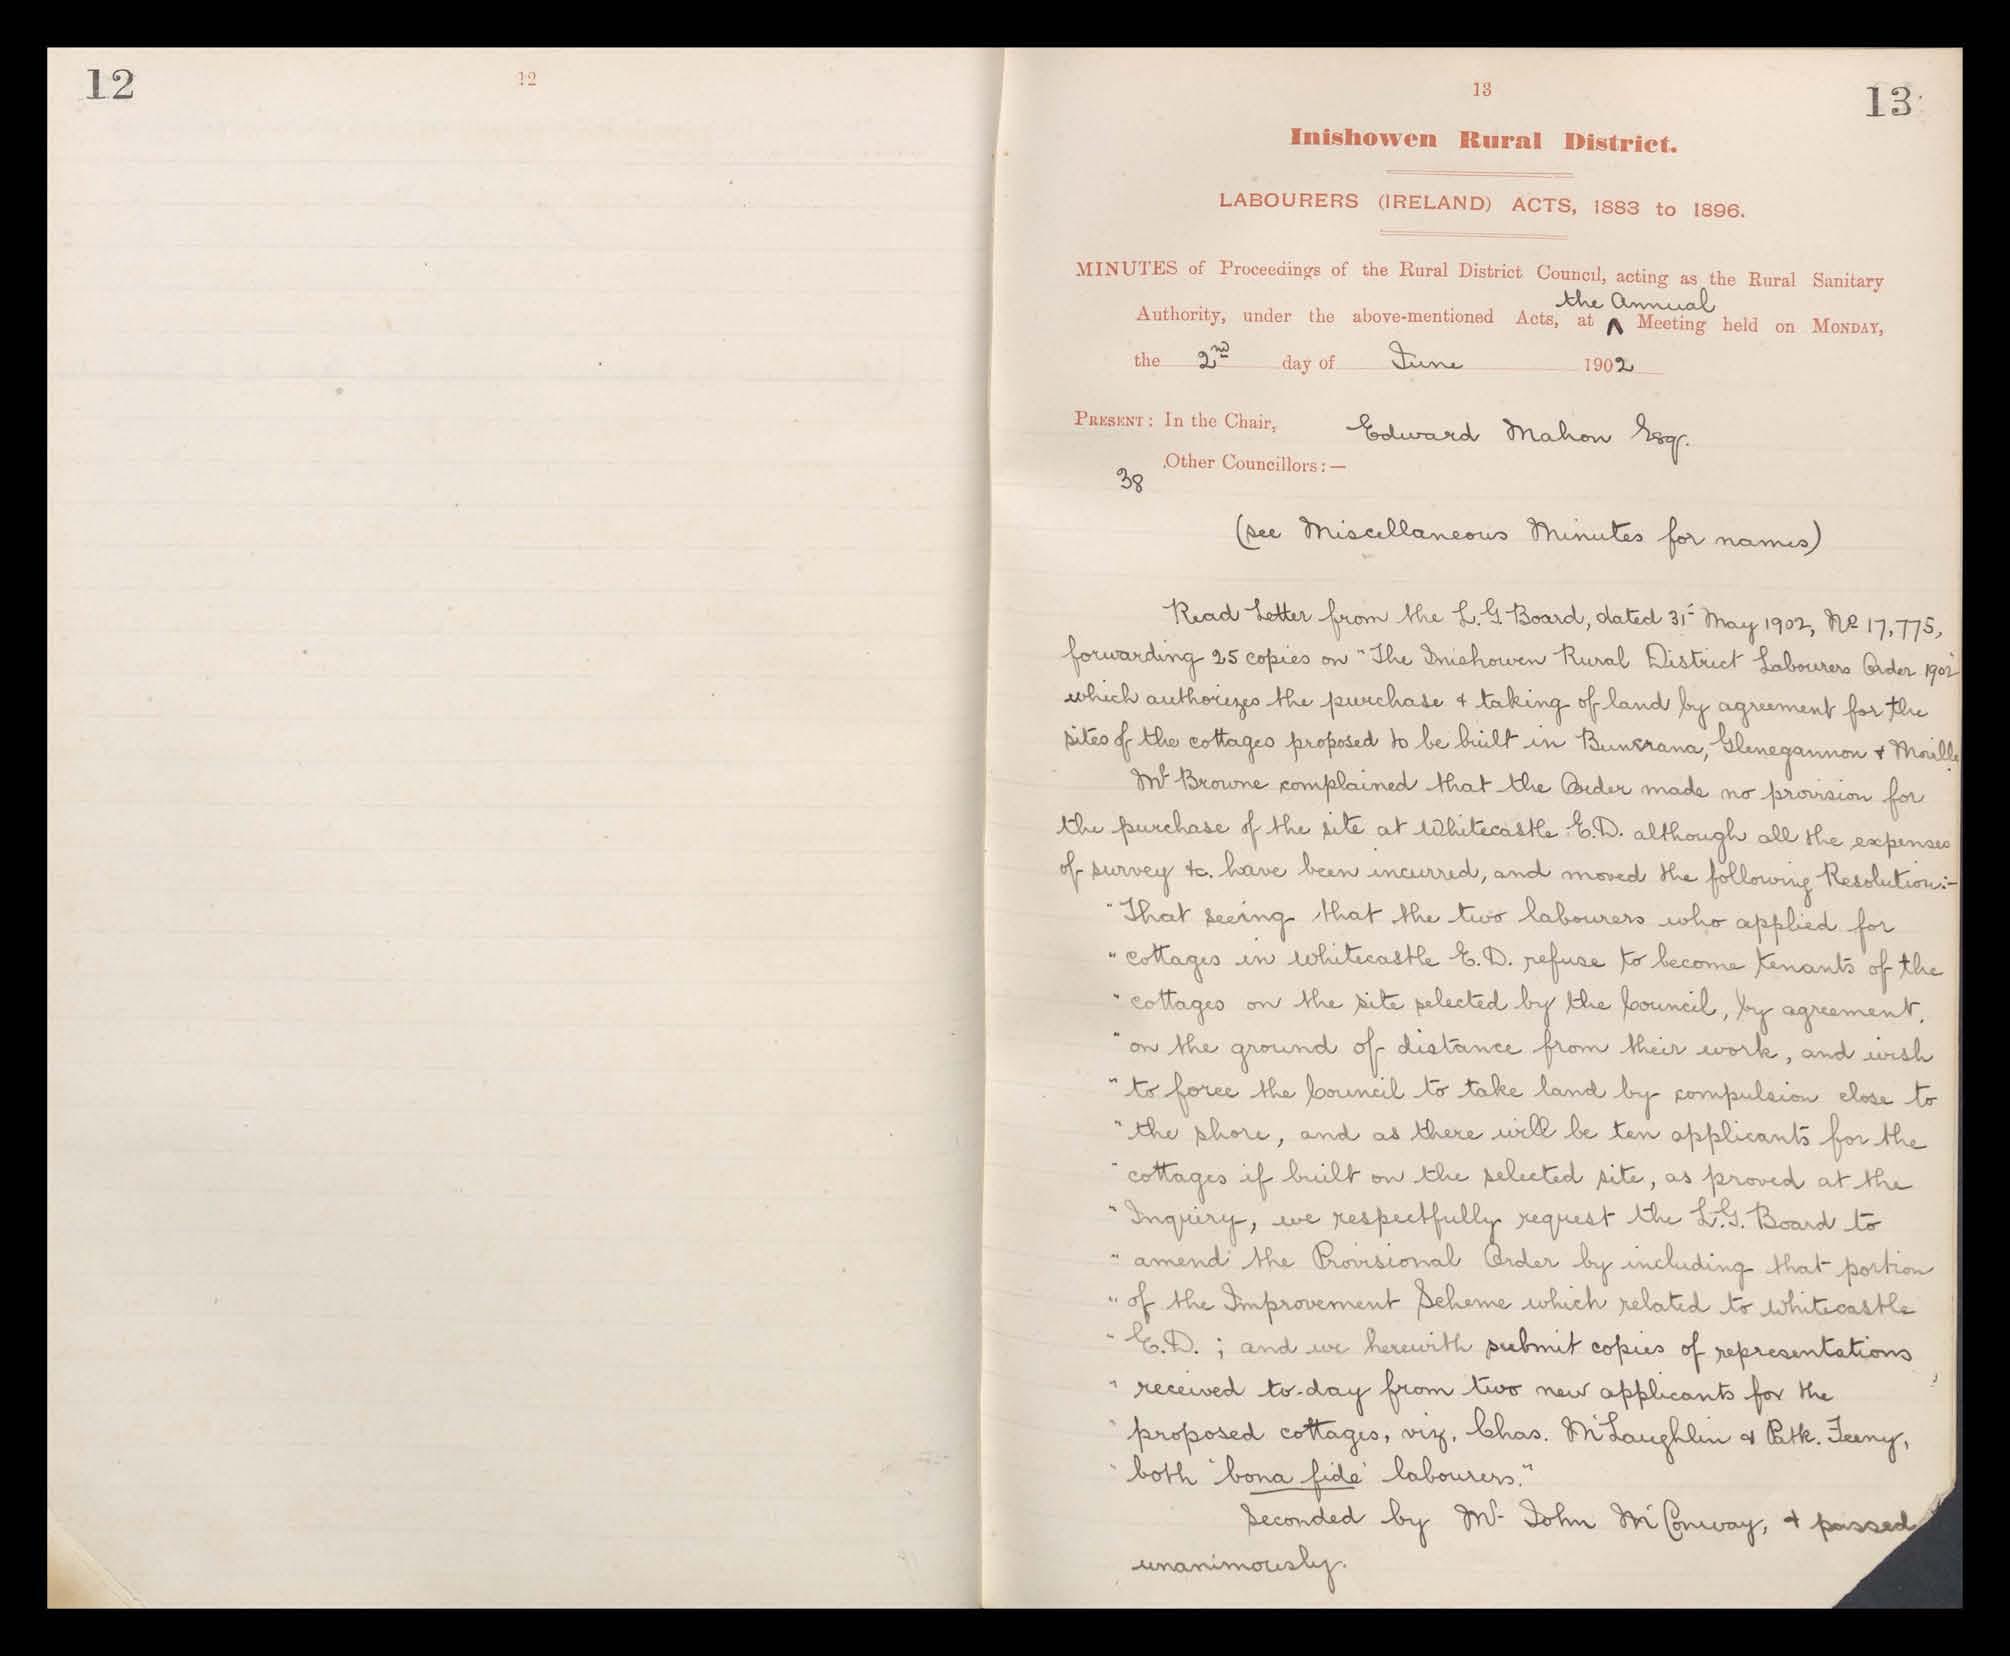 12
12
13
13
Inishowen Rural District.
LABOURERS (IRELAND) ACTS, 1883 to 1896.
MINUTES of Proceedings of the Rural District Council, acting as the Rural Sanitary
the Annual
Authority, under the above-mentioned Acts, at ∧ Meeting held on MONDAY,
the 2nd day of June 1902
PRESENT: In the Chair, Edward Mahon Esq.
Other Councillors:—
38
(see Miscellaneous Minutes for names)
Read Letter from the L. G. Board, dated 31st May 1902, No 17,775,
forwarding 25 copies on "The Inishowen Rural District Labourers Order 1902"
which authorizes the purchase & taking of land by agreement for the
sites of the cottages proposed to be built in Buncrana, Glenegannon & Moville.
Mr Browne complained that the Order made no provision for
the purchase of the site at Whitecastle E.D. although all the expenses
of survey &c. have been incurred, and moved the following Resolution:-
"That seeing that the two labourers who applied for
" cottages in Whitecastle E.D. refuse to become tenants of the
" cottages on the site selected by the Council, by agreement,
" on the ground of distance from their work, and wish
" to force the Council to take land by compulsion close to
" the shore, and as there will be ten applicants for the
" cottages if built on the selected site, as proved at the
" Inquiry, we respectfully request the L.G. Board to
" amend the Provisional Order by including that portion
" of the Improvement Scheme which related to Whitecastle
" E.D. ; and we herewith submit copies of representations
" received to-day from two new applicants for the
" proposed cottages, viz. Chas. McLaughlin & Patk. Feeny,
" both 'bona fide' labourers."
Seconded by Mr John McConway, & passed
unanimously.